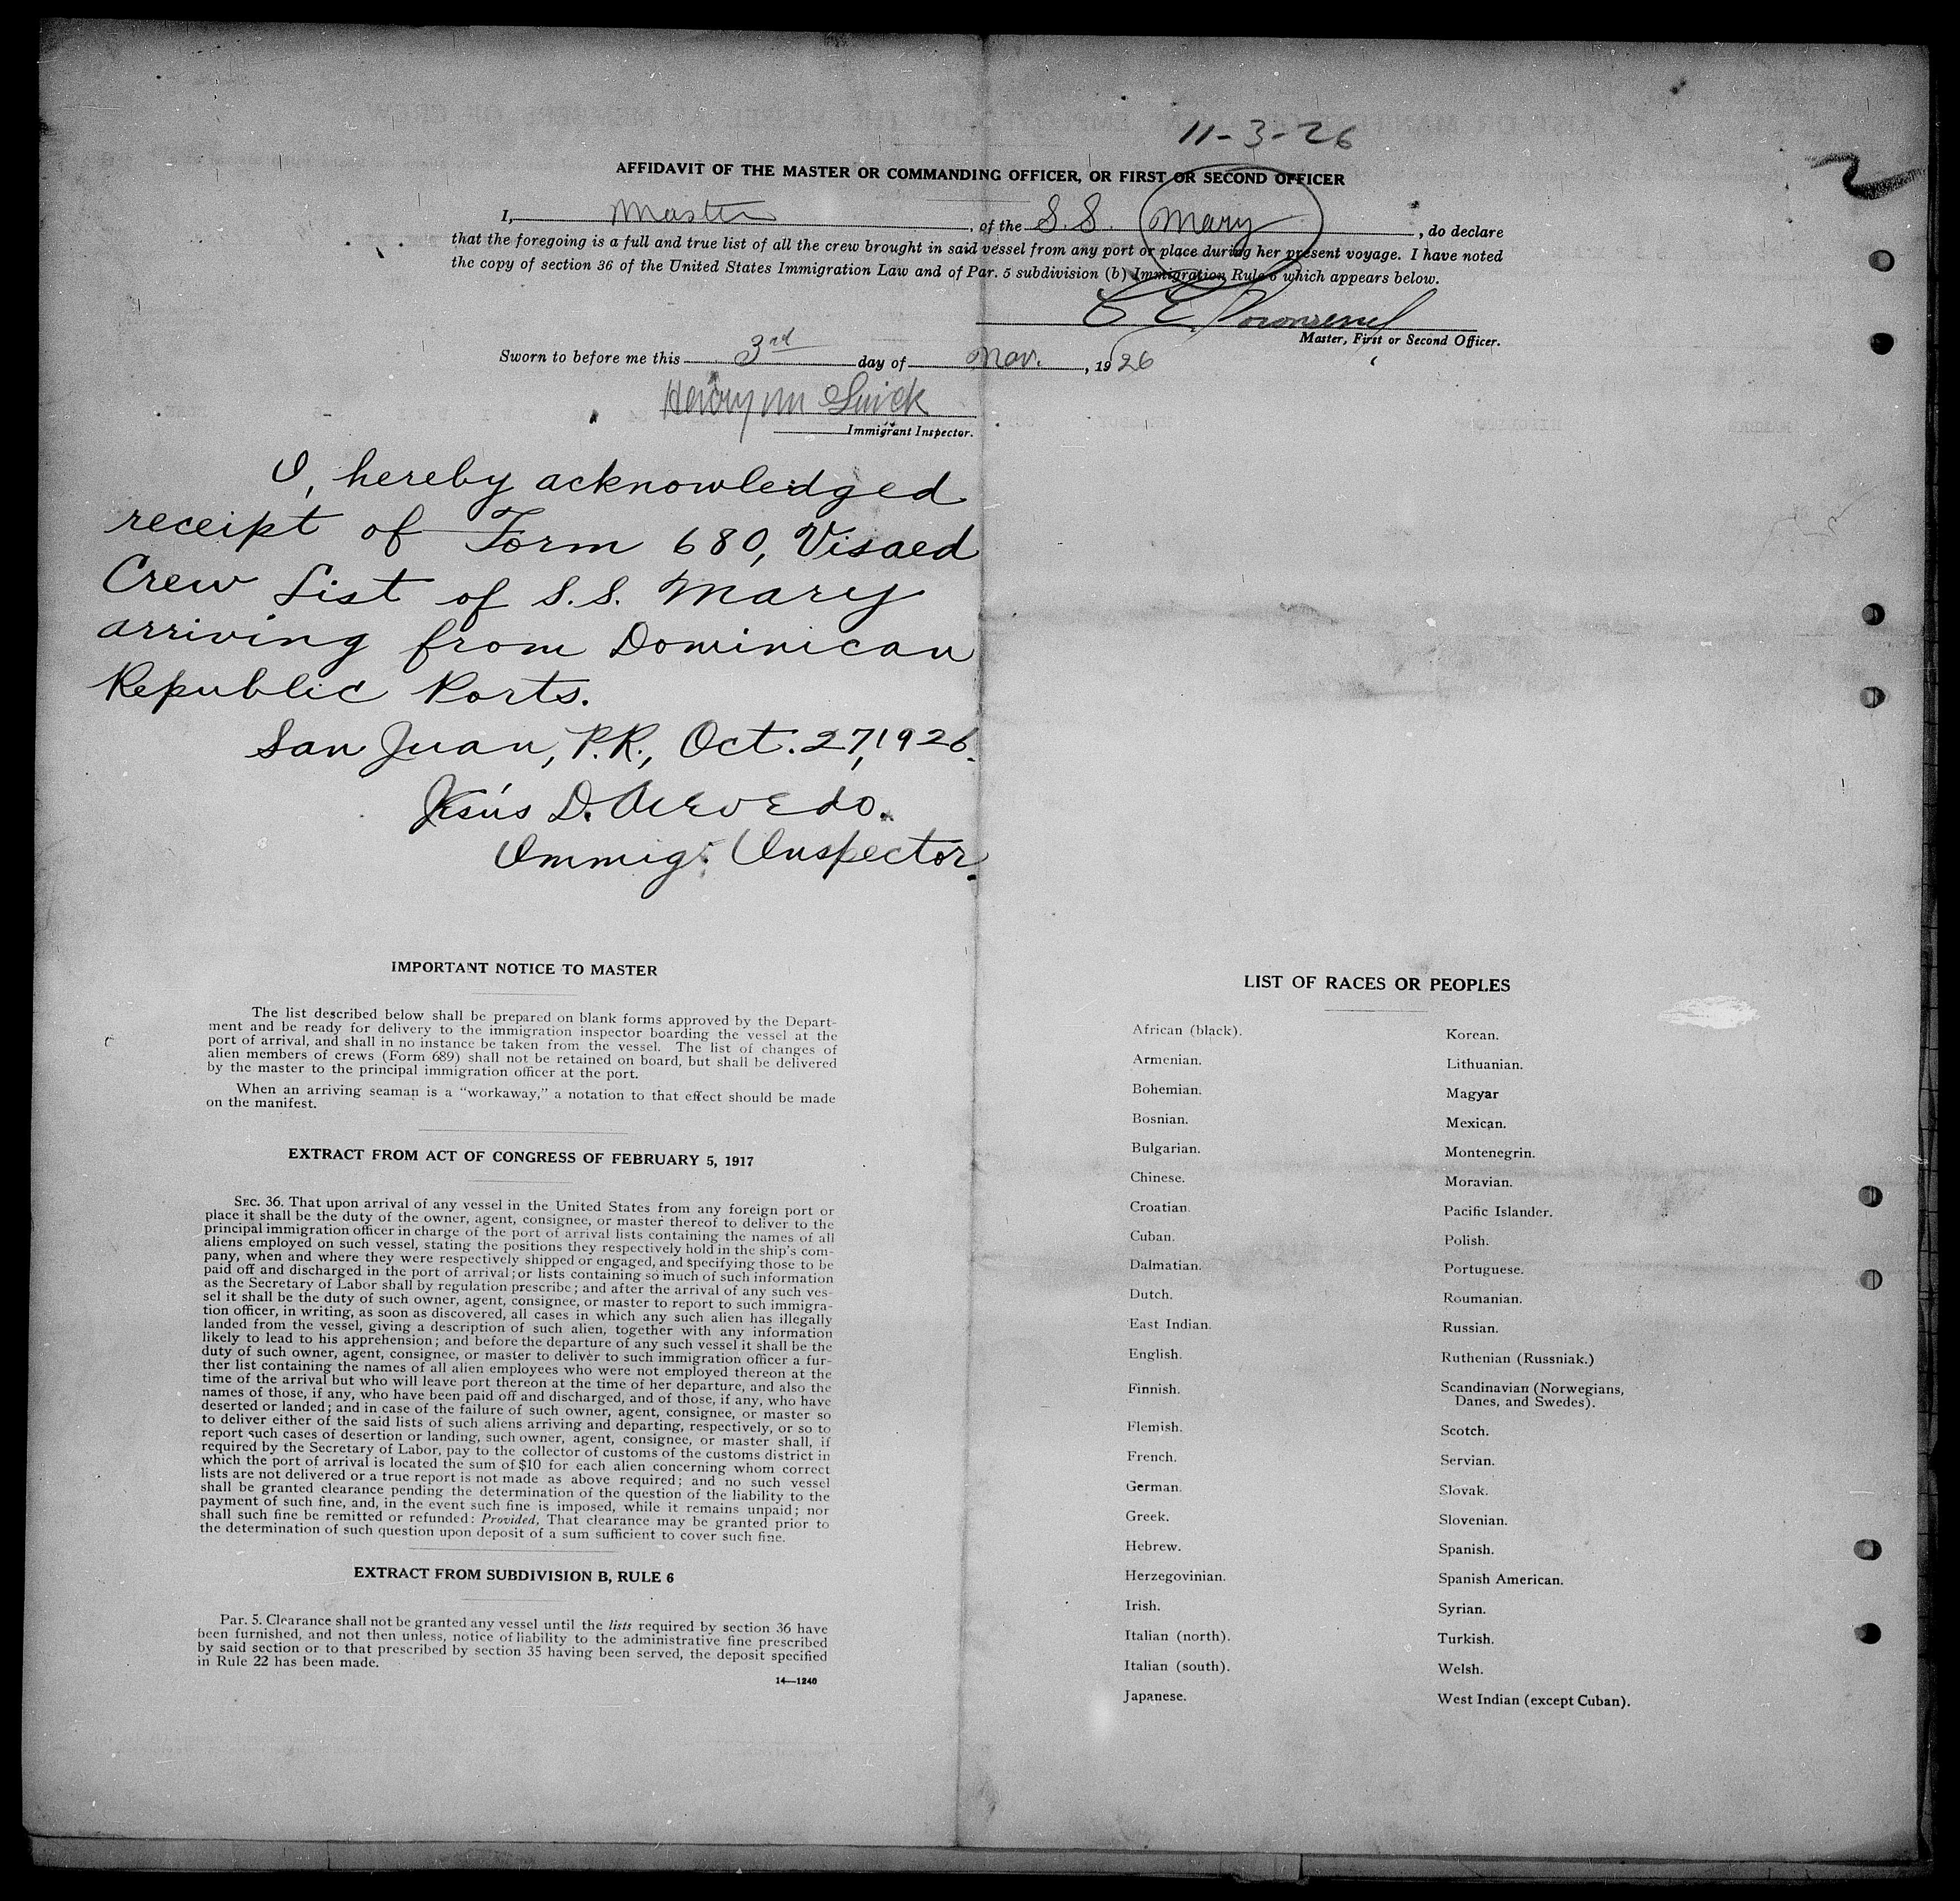 11-3-26
2
AFFIDAVIT OF THE MASTER OR COMMANDING OFFICER, OR FIRST OR SECOND OFFICER
I, Master, of the S.S. Mary, do declare
that the foregoing is a full and true list of all the crew brought in said vessel from any port or place during her present voyage. I have noted
the copy of section 36 of the United States Immigration Law and of Par. 5 subdivision (b) Immigration Rule 6 which appears below.
C E Townsend
Master, First or Second Officer.
Sworn to before me this 3rd day of Nov., 1926
Immigrant Inspector.
I, hereby acknowledged
receipt of Form 680, Visaed
Crew List of S.S. Mary
arriving from Dominican
Republic Ports.
San Juan, P.R., Oct. 27, 1926.
Jesús D. Acevedo.
Immig. Inspector.
IMPORTANT NOTICE TO MASTER
The list described below shall be prepared on blank forms approved by the Depart-
ment and be ready for delivery to the immigration inspector boarding the vessel at the
port of arrival, and shall in no instance be taken from the vessel. The list of changes of
alien members of crews (Form 689) shall not be retained on board, but shall be delivered
by the master to the principal immigration officer at the port.
When an arriving seaman is a "workaway," a notation to that effect should be made
on the manifest.
EXTRACT FROM ACT OF CONGRESS OF FEBRUARY 5, 1917
SEC. 36. That upon arrival of any vessel in the United States from any foreign port or
place it shall be the duty of the owner, agent, consignee, or master thereof to deliver to the
principal immigration officer in charge of the port of arrival lists containing the names of all
aliens employed on such vessel, stating the positions they respectively hold in the ship's com-
pany, when and where they were respectively shipped or engaged, and specifying those to be
paid off and discharged in the port of arrival; or lists containing so much of such information
as the Secretary of Labor shall by regulation prescribe; and after the arrival of any such ves-
sel it shall be the duty of such owner, agent, consignee, or master to report to such immigra-
tion officer, in writing, as soon as discovered, all cases in which any such alien has illegally
landed from the vessel, giving a description of such alien, together with any information
likely to lead to his apprehension; and before the departure of any such vessel it shall be the
duty of such owner, agent, consignee, or master to deliver to such immigration officer a fur-
ther list containing the names of all alien employees who were not employed thereon at the
time of the arrival but who will leave port thereon at the time of her departure, and also the
names of those, if any, who have been paid off and discharged, and of those, if any, who have
deserted or landed; and in case of the failure of such owner, agent, consignee, or master so
to deliver either of the said lists of such aliens arriving and departing, respectively, or so to
report such cases of desertion or landing, such owner, agent, consignee, or master shall, if
required by the Secretary of Labor, pay to the collector of customs of the customs district in
which the port of arrival is located the sum of $10 for each alien concerning whom correct
lists are not delivered or a true report is not made as above required; and no such vessel
shall be granted clearance pending the determination of the question of the liability to the
payment of such fine, and, in the event such fine is imposed, while it remains unpaid; nor
shall such fine be remitted or refunded: Provided, That clearance may be granted prior to
the determination of such question upon deposit of a sum sufficient to cover such fine.
EXTRACT FROM SUBDIVISION B, RULE 6
Par. 5. Clearance shall not be granted any vessel until the lists required by section 36 have
been furnished, and not then unless, notice of liability to the administrative fine prescribed
by said section or to that prescribed by section 35 having been served, the deposit specified
in Rule 22 has been made.
14—1240
LIST OF RACES OR PEOPLES
African (black).
Armenian.
Bohemian.
Bosnian.
Bulgarian.
Chinese.
Croatian.
Cuban.
Dalmatian.
Dutch.
East Indian.
English.
Finnish.
Flemish.
French.
German.
Greek.
Hebrew.
Herzegovinian.
Irish.
Italian (north).
Italian (south).
Japanese.
Korean.
Lithuanian.
Magyar
Mexican.
Montenegrin.
Moravian.
Pacific Islander.
Polish.
Portuguese.
Roumanian.
Russian.
Ruthenian (Russniak.)
Scandinavian (Norwegians,
Danes, and Swedes).
Scotch.
Servian.
Slovak.
Slovenian.
Spanish.
Spanish American.
Syrian.
Turkish.
Welsh.
West Indian (except Cuban).